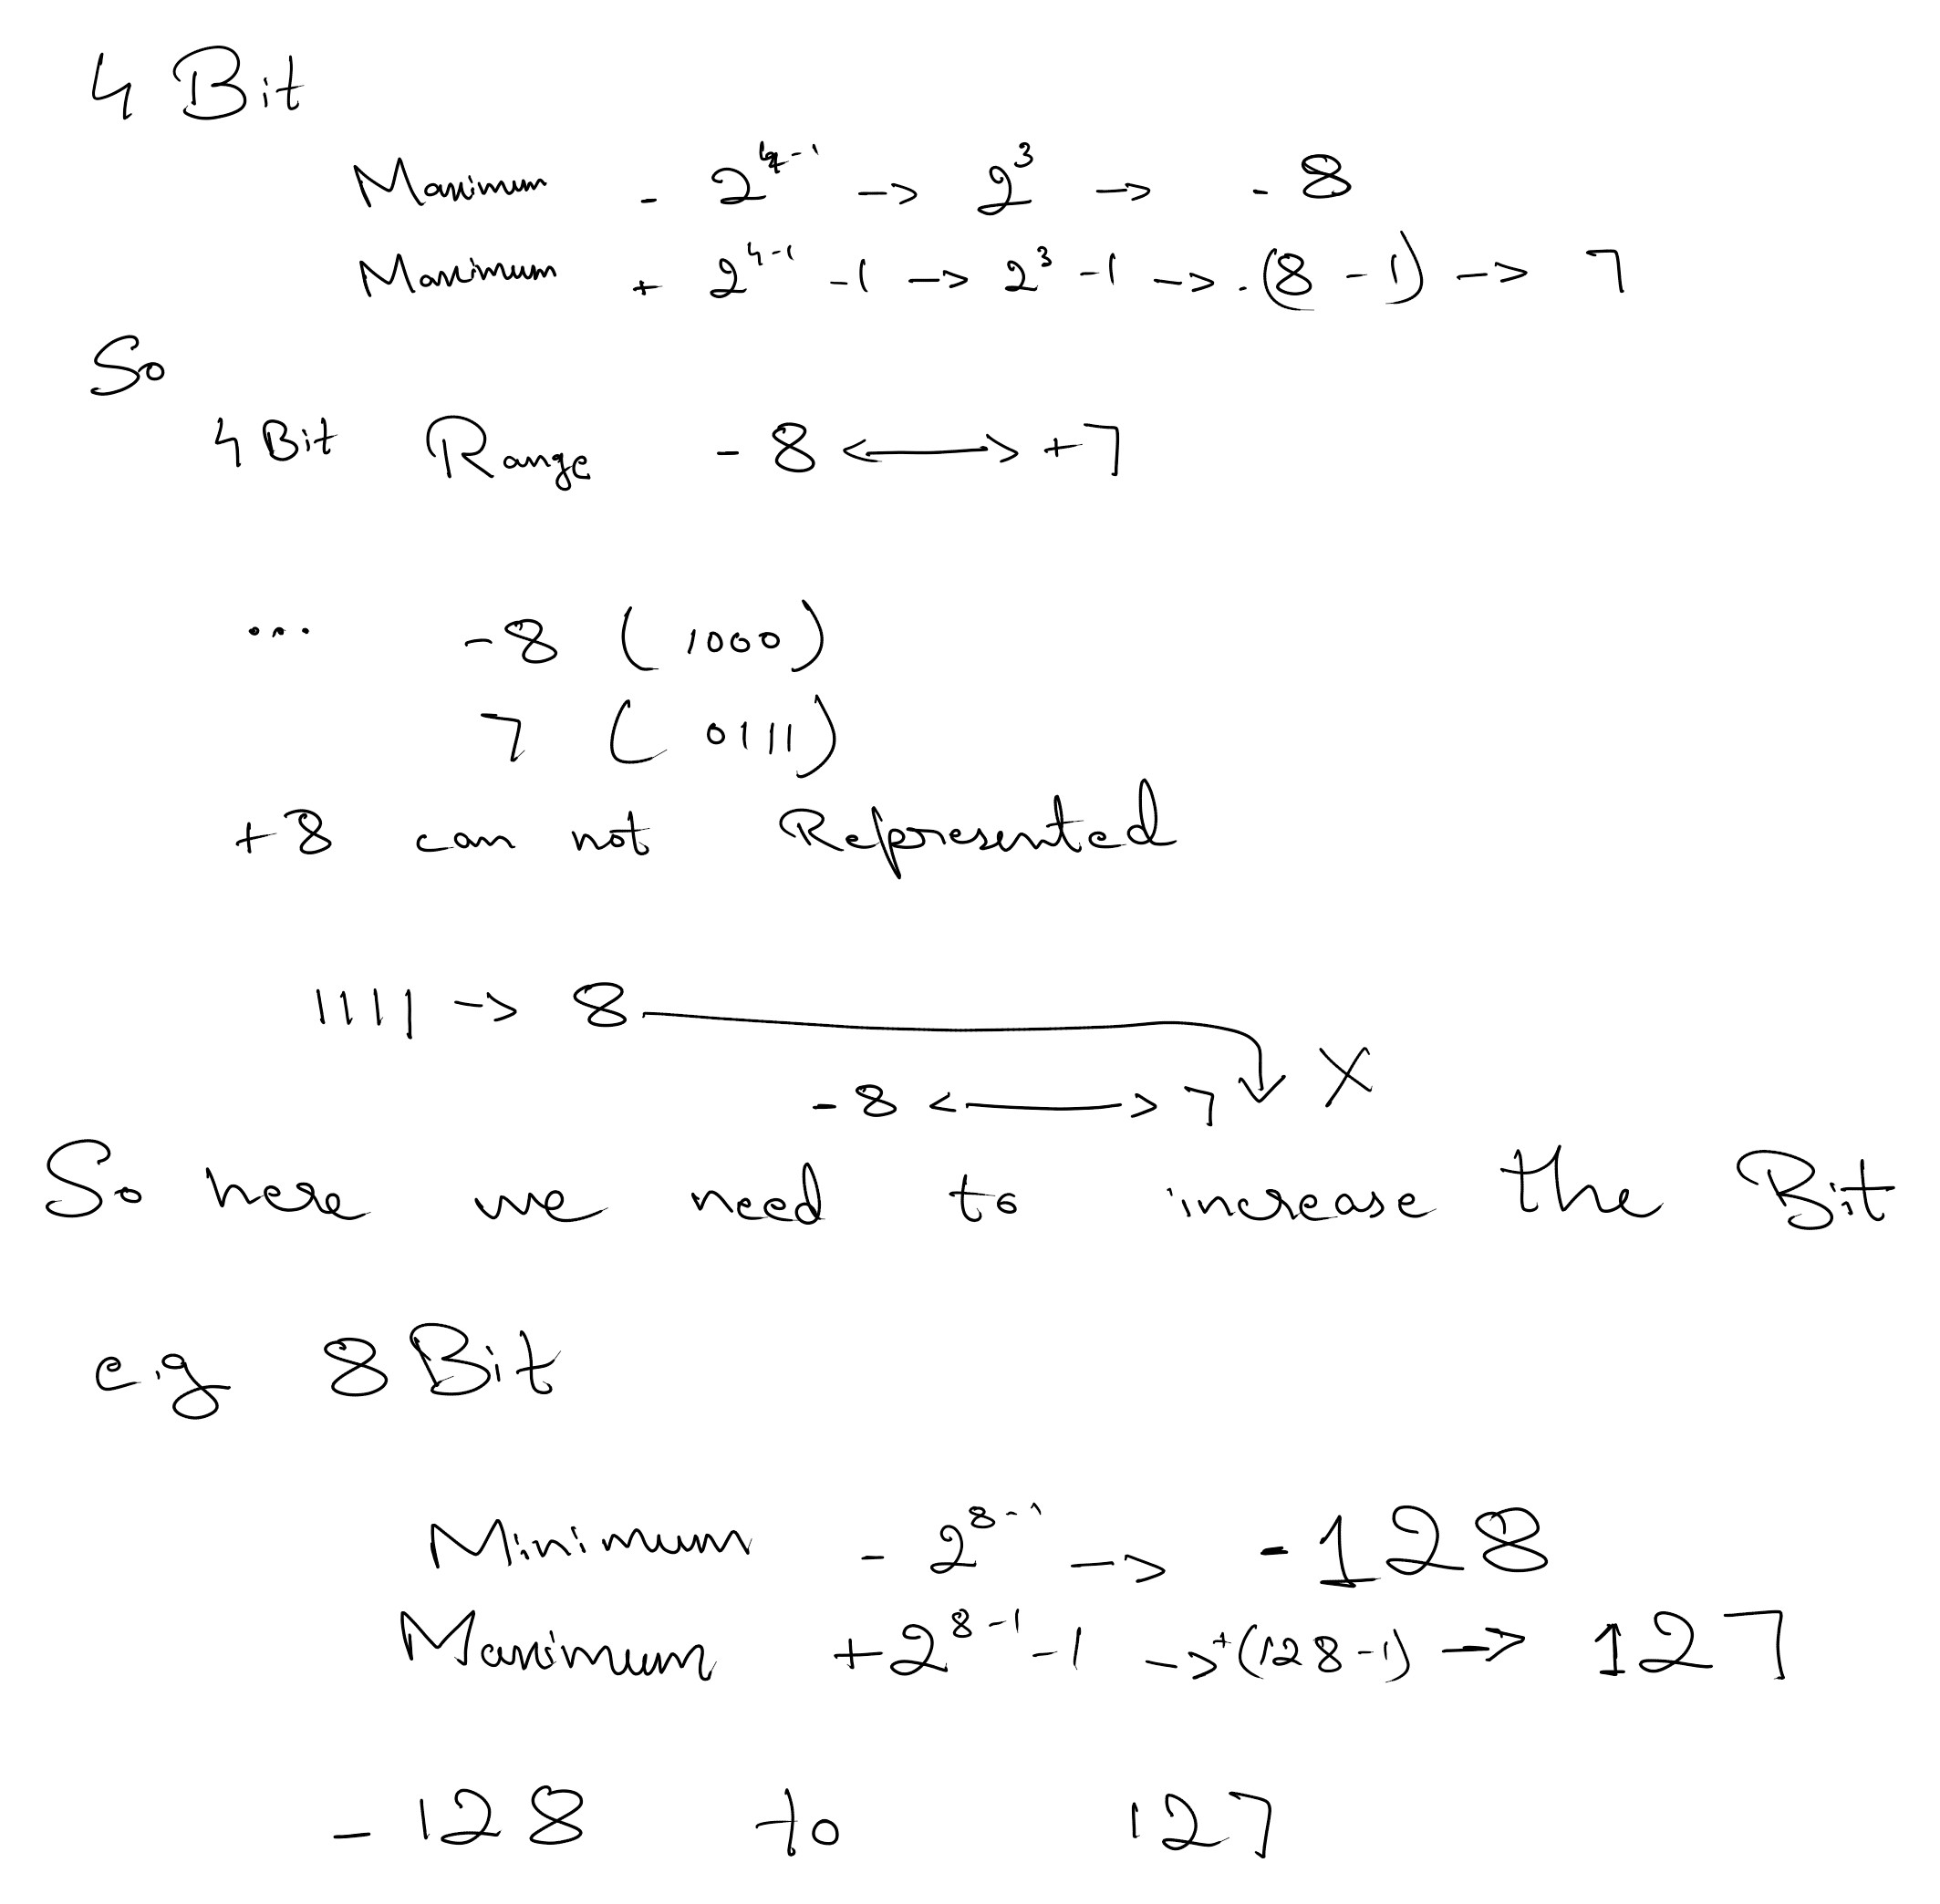 4 Bit
Maximum - 2^4-1 -> 2^3 -> - 8
Maximum + 2^4-1 - 1 -> 2^3 - 1 -> (8 - 1) -> 7
So
4 Bit Range - 8 <-> +7
... -8 (1000)
7 (0111)
+8 can not Represented
1111 -> 8
- 8 <-> 7 X
So here we need to increase the Bit
e.g 8 Bit
Minimum - 2^8-1 -> - 128
Maximum +2^8-1 - 1 -> +(128 - 1) -> 127
- 128 to 127